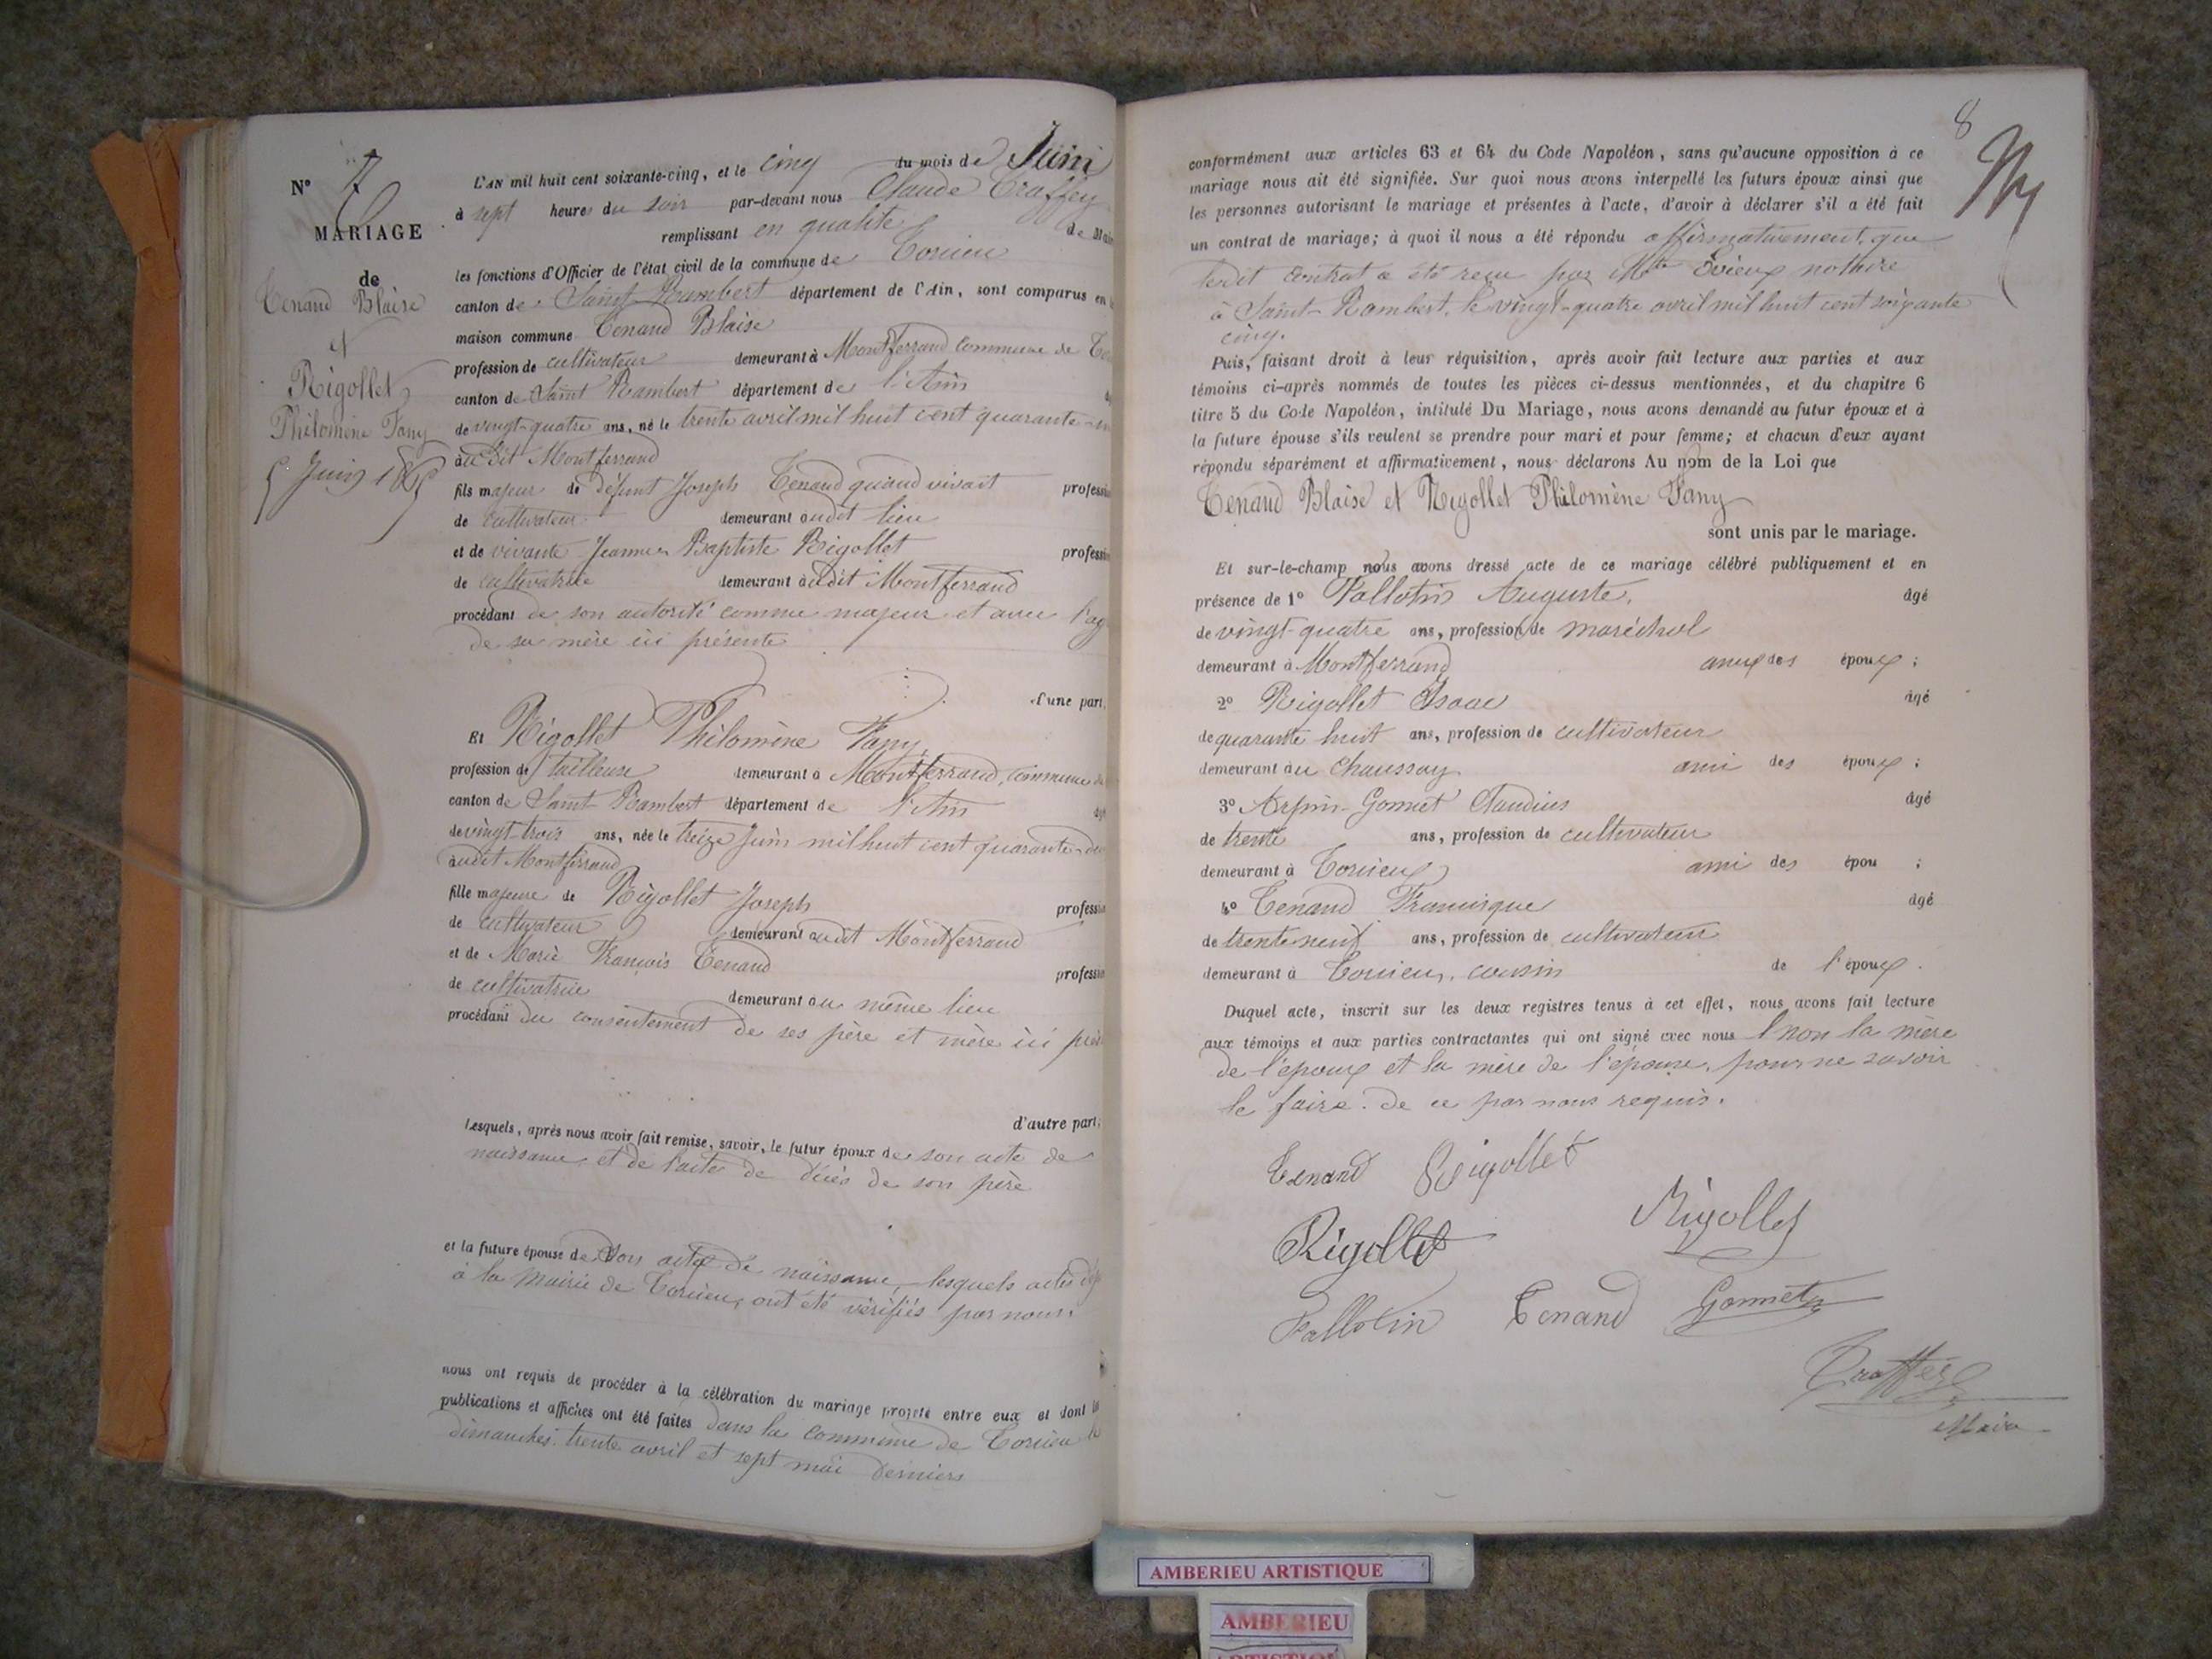 N° 7
MARIAGE
de
Tenand Blaise
et
Rigollet
Philomène Fany
5 Juin 1865
L'AN mil huit cent soixante-cinq, et le cinq du mois de Juin
à sept heures du soir par-devant nous Claude Traffey
remplissant en qualité de Mai
les fonctions d'Officier de l'état civil de la commune de Torcieu
canton de Saint Rambert département de l'Ain, sont comparus en
maison commune Tenand Blaise
profession de cultivateur demeurant à Montferrand commune de
canton de Saint Rambert département de l'Ain
de vingt-quatre ans, né le trente avril mil huit cent quarante-
audit Montferrand
fils majeur de défunt Joseph Tenand quand vivait professi
de cultivateur demeurant audit lieu
et de vivante Jeanne Baptiste Rigollet professi
de cultivatrice demeurant audit Montferrand
procédant de son autorité comme majeur et avec l'ag
de sa mère ici présente
d'une part,
Et Rigollet Philomène Fany
profession de tailleuse demeurant à Montferrand, commune de
canton de Saint Rambert département de l'Ain
de vingt-trois ans, née le treize Juin mil huit cent quarante-
audit Montferrand
fille majeure de Rigollet Joseph professi
de cultivateur demeurant audit Montferrand
et de Marie François Tenand professi
de cultivatrice demeurant au même lieu
procédant du consentement de ses père et mère ici
d'autre part;
Lesquels, après nous avoir fait remise, savoir, le futur époux de son acte de
naissance et de l'acte de décès de son père
et la future épouse de son acte de naissance, lesquels actes
à la Mairie de Torcieu, ont été vérifiés par nous.
nous ont requis de procéder à la célébration du mariage projeté entre eux et dont
publications et affiches ont été faites dans la commune de Torcieu
dimanches trente avril et sept mai derniers
8
conformément aux articles 63 et 64 du Code Napoléon, sans qu'aucune opposition à ce
mariage nous ait été signifiée. Sur quoi nous avons interpellé les futurs époux ainsi que
les personnes autorisant le mariage et présentes à l'acte, d'avoir à déclarer s'il a été fait
un contrat de mariage; à quoi il nous a été répondu affirmativement, que
ledit contrat a été reçu par notaire
à Saint-Rambert, le vingt-quatre avril mil huit cent soixante
cinq.
Puis, faisant droit à leur réquisition, après avoir fait lecture aux parties et aux
témoins ci-après nommés de toutes les pièces ci-dessus mentionnées, et du chapitre 6
titre 5 du Code Napoléon, intitulé Du Mariage, nous avons demandé au futur époux et à
la future épouse s'ils veulent se prendre pour mari et pour femme; et chacun d'eux ayant
répondu séparément et affirmativement, nous déclarons Au nom de la Loi que
Tenand Blaise et Rigollet Philomène Fany
sont unis par le mariage.
Et sur-le-champ nous avons dressé acte de ce mariage célébré publiquement et en
présence de 1° Vallotin Auguste, âgé
de vingt-quatre ans, profession de maréchal
demeurant à Montferrand des époux ;
2° Rigollet Isaac âgé
de quarante huit ans, profession de cultivateur
demeurant au Chaussay ami des époux ;
3° Arpin-Gonnet Claudius âgé
de trente ans, profession de cultivateur
demeurant à Torcieu ami des épou ;
4° Tenand Francisque âgé
de trente neuf ans, profession de cultivateur
demeurant à Torcieu, cousin de l'époux.
Duquel acte, inscrit sur les deux registres tenus à cet effet, nous avons fait lecture
aux témoins et aux parties contractantes qui ont signé avec nous non la mère
de l'époux et la mère de l'épouse, pour ne savoir
le faire. de ce par nous requis.
Tenand Rigollet
Rigollet
Rigollet
Vallotin Tenand Gonnet
Traffey
Maire
AMBERIEU ARTISTIQUE
AMBERIEU
ARTISTIQUE